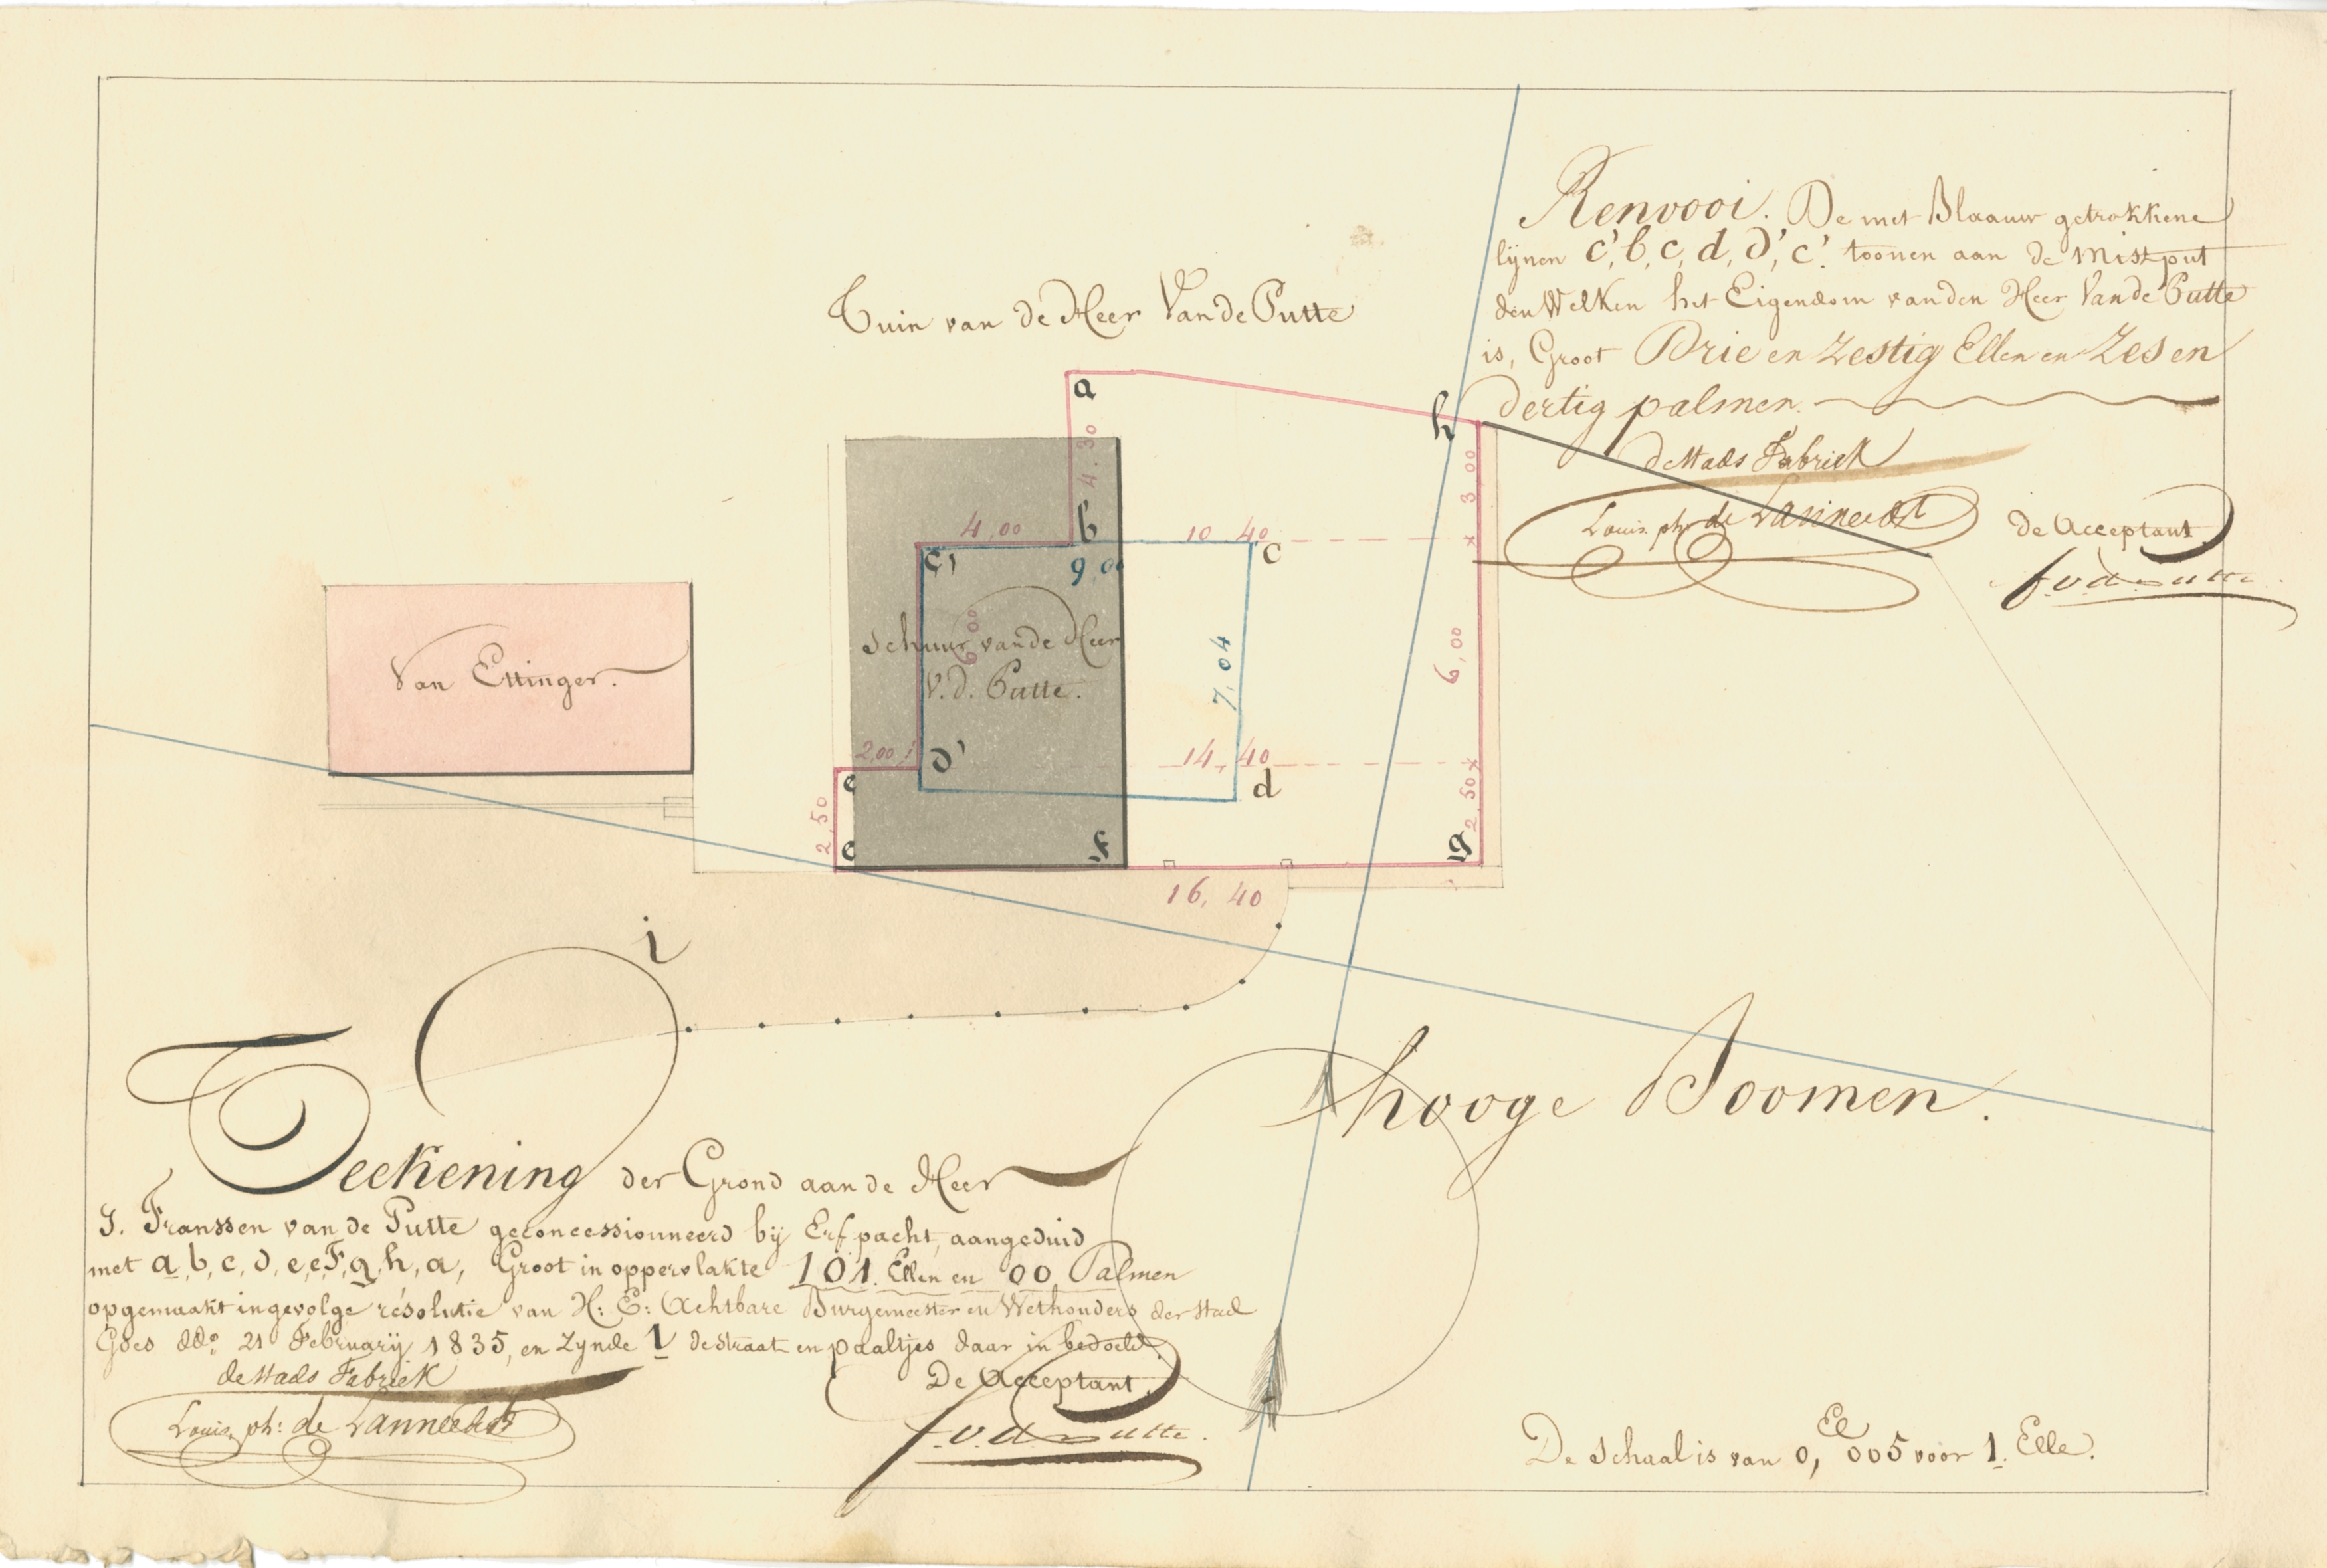 Renvooi. De met Blaauw getrokkene
lijnen c', b, c, d, d', c'. toonen aan de Mistput
den Welken het Eigendom van den Heer Van de Putte
is, Groot Drie en Zestig Ellen en Zes en
dertig palmen.
de Stads Fabriek
Louis ph: de
de Acceptant
Tuin van de Heer Van de Putte
a
h
4.30
3 00
b
4,00
10 40
c'
9,0
c
Schuur van de Heer
V. d. Putte.
6,00
7,04
6,00
Van Ettinger.
2,00
d'
14,40
d
e
2,50
2,50
e
f
g
16,40
i
hooge Boomen.
Teekening der Grond aan de Heer
J. Franssen van de Putte geconcessionneerd bij Erfpacht, aangeduid
met a, b, c, d, e, e, F, g, h, a, Groot in oppervlakte 101. Ellen en 00 Palmen
opgemaakt ingevolge résolutie van H: E: Achtbare Burgemeester en Wethouders der Stad
Goes ddo 21 Februarij 1835, en Zynde 1 de Straat en paaltjes daar in bedoeld.
de Stads Fabriek
De Acceptant.
Louis ph: de
De Schaal is van 0, El 005 voor 1. Elle.